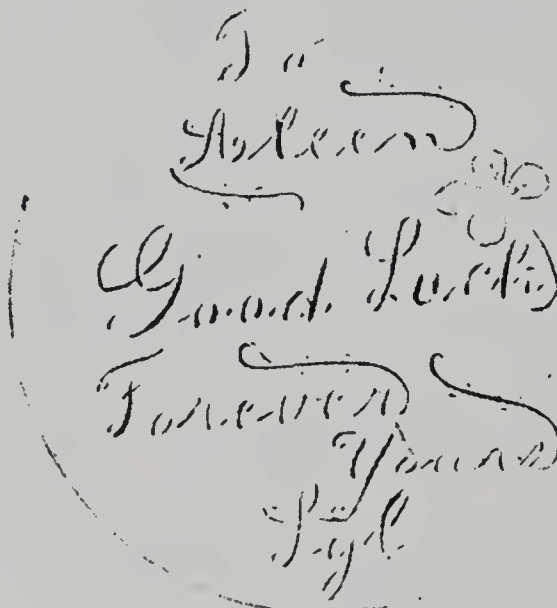 To
Arleen
Good Luck
Forever
Yours
Syl